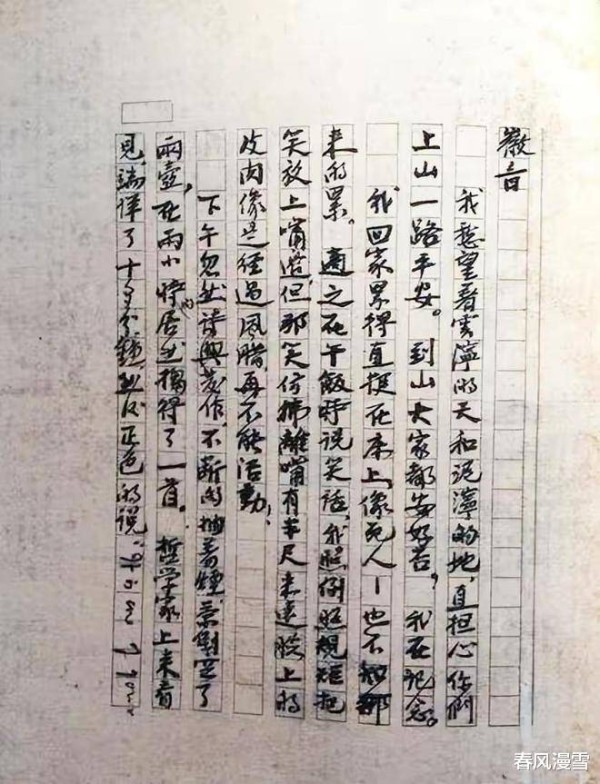 徽音
我愁望着雲濘的天和泥濘的地，直担心你們
上山一路平安。到山大家都安好否？我在記念。
我回家累得直挺在床上，像死人——也不知那
来的累。適之在午飯時说笑话，我照例照規矩把
笑放上嘴邊，但那笑仿彿離嘴有半尺来遠，臉上的
皮肉像是經過風腊，再不能活動！
下午忽然诗興发作，不断的抽着煙，茶倒空了
兩壺，在兩小時内，居然搊得了一首。哲学家上来看
見，端详了十多分鐘，然後正色的说：
春风漫雪